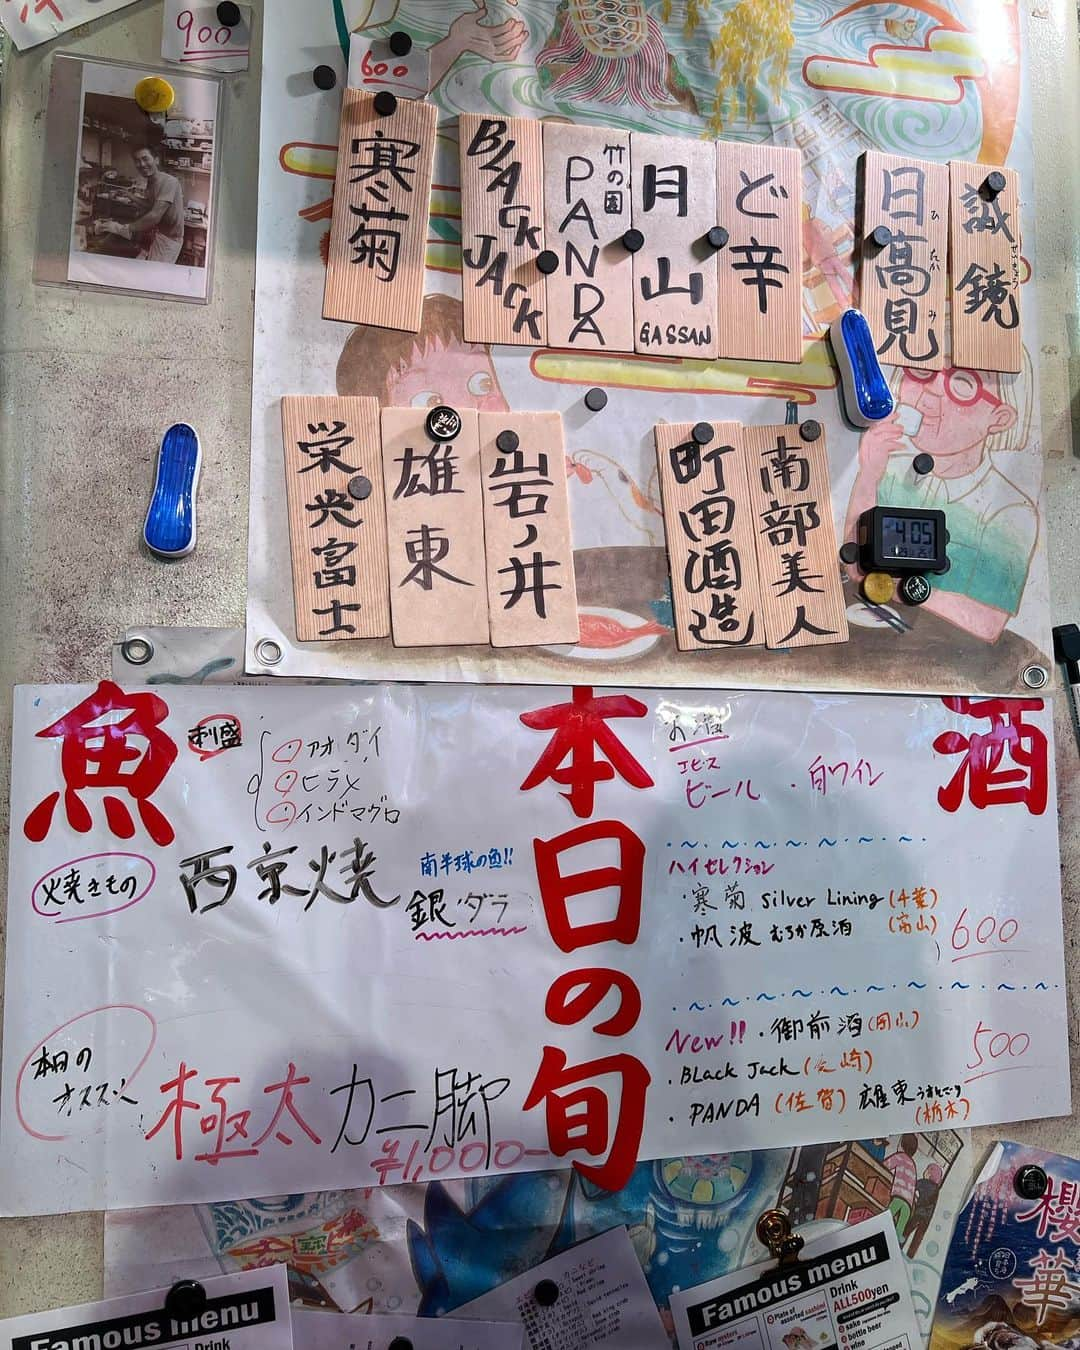 900
600
寒菊
BLACK JACK
竹の園
PANDA
月山
GASSAN
ど辛
日高見
ひたかみ
誠鏡
栄光冨士
雄東
岩ノ井
町田酒造
南部美人
4:05
魚
本日の旬
酒
刺盛
アオダイ
ヒラメ
インドマグロ
焼きもの
西京焼
南半球の魚!!
銀ダラ
本日の
オススメ
極太カニ脚
¥1,000-
ヱビス
ビール ・白ワイン
ハイセレクション
・寒菊 Silver Lining (千葉)
・帆波 むろか原酒 (富山)
600
New!! ・御前酒 (岡山)
500
・BLack Jack (宮崎)
・PANDA (佐賀) 雄東 うすにごり (栃木)
櫻華
Famous menu
Drink
Famous menu
Drink
ALL500yen
sake
bottle beer
wine
Plate of
assorted sashimi
Raw oysters